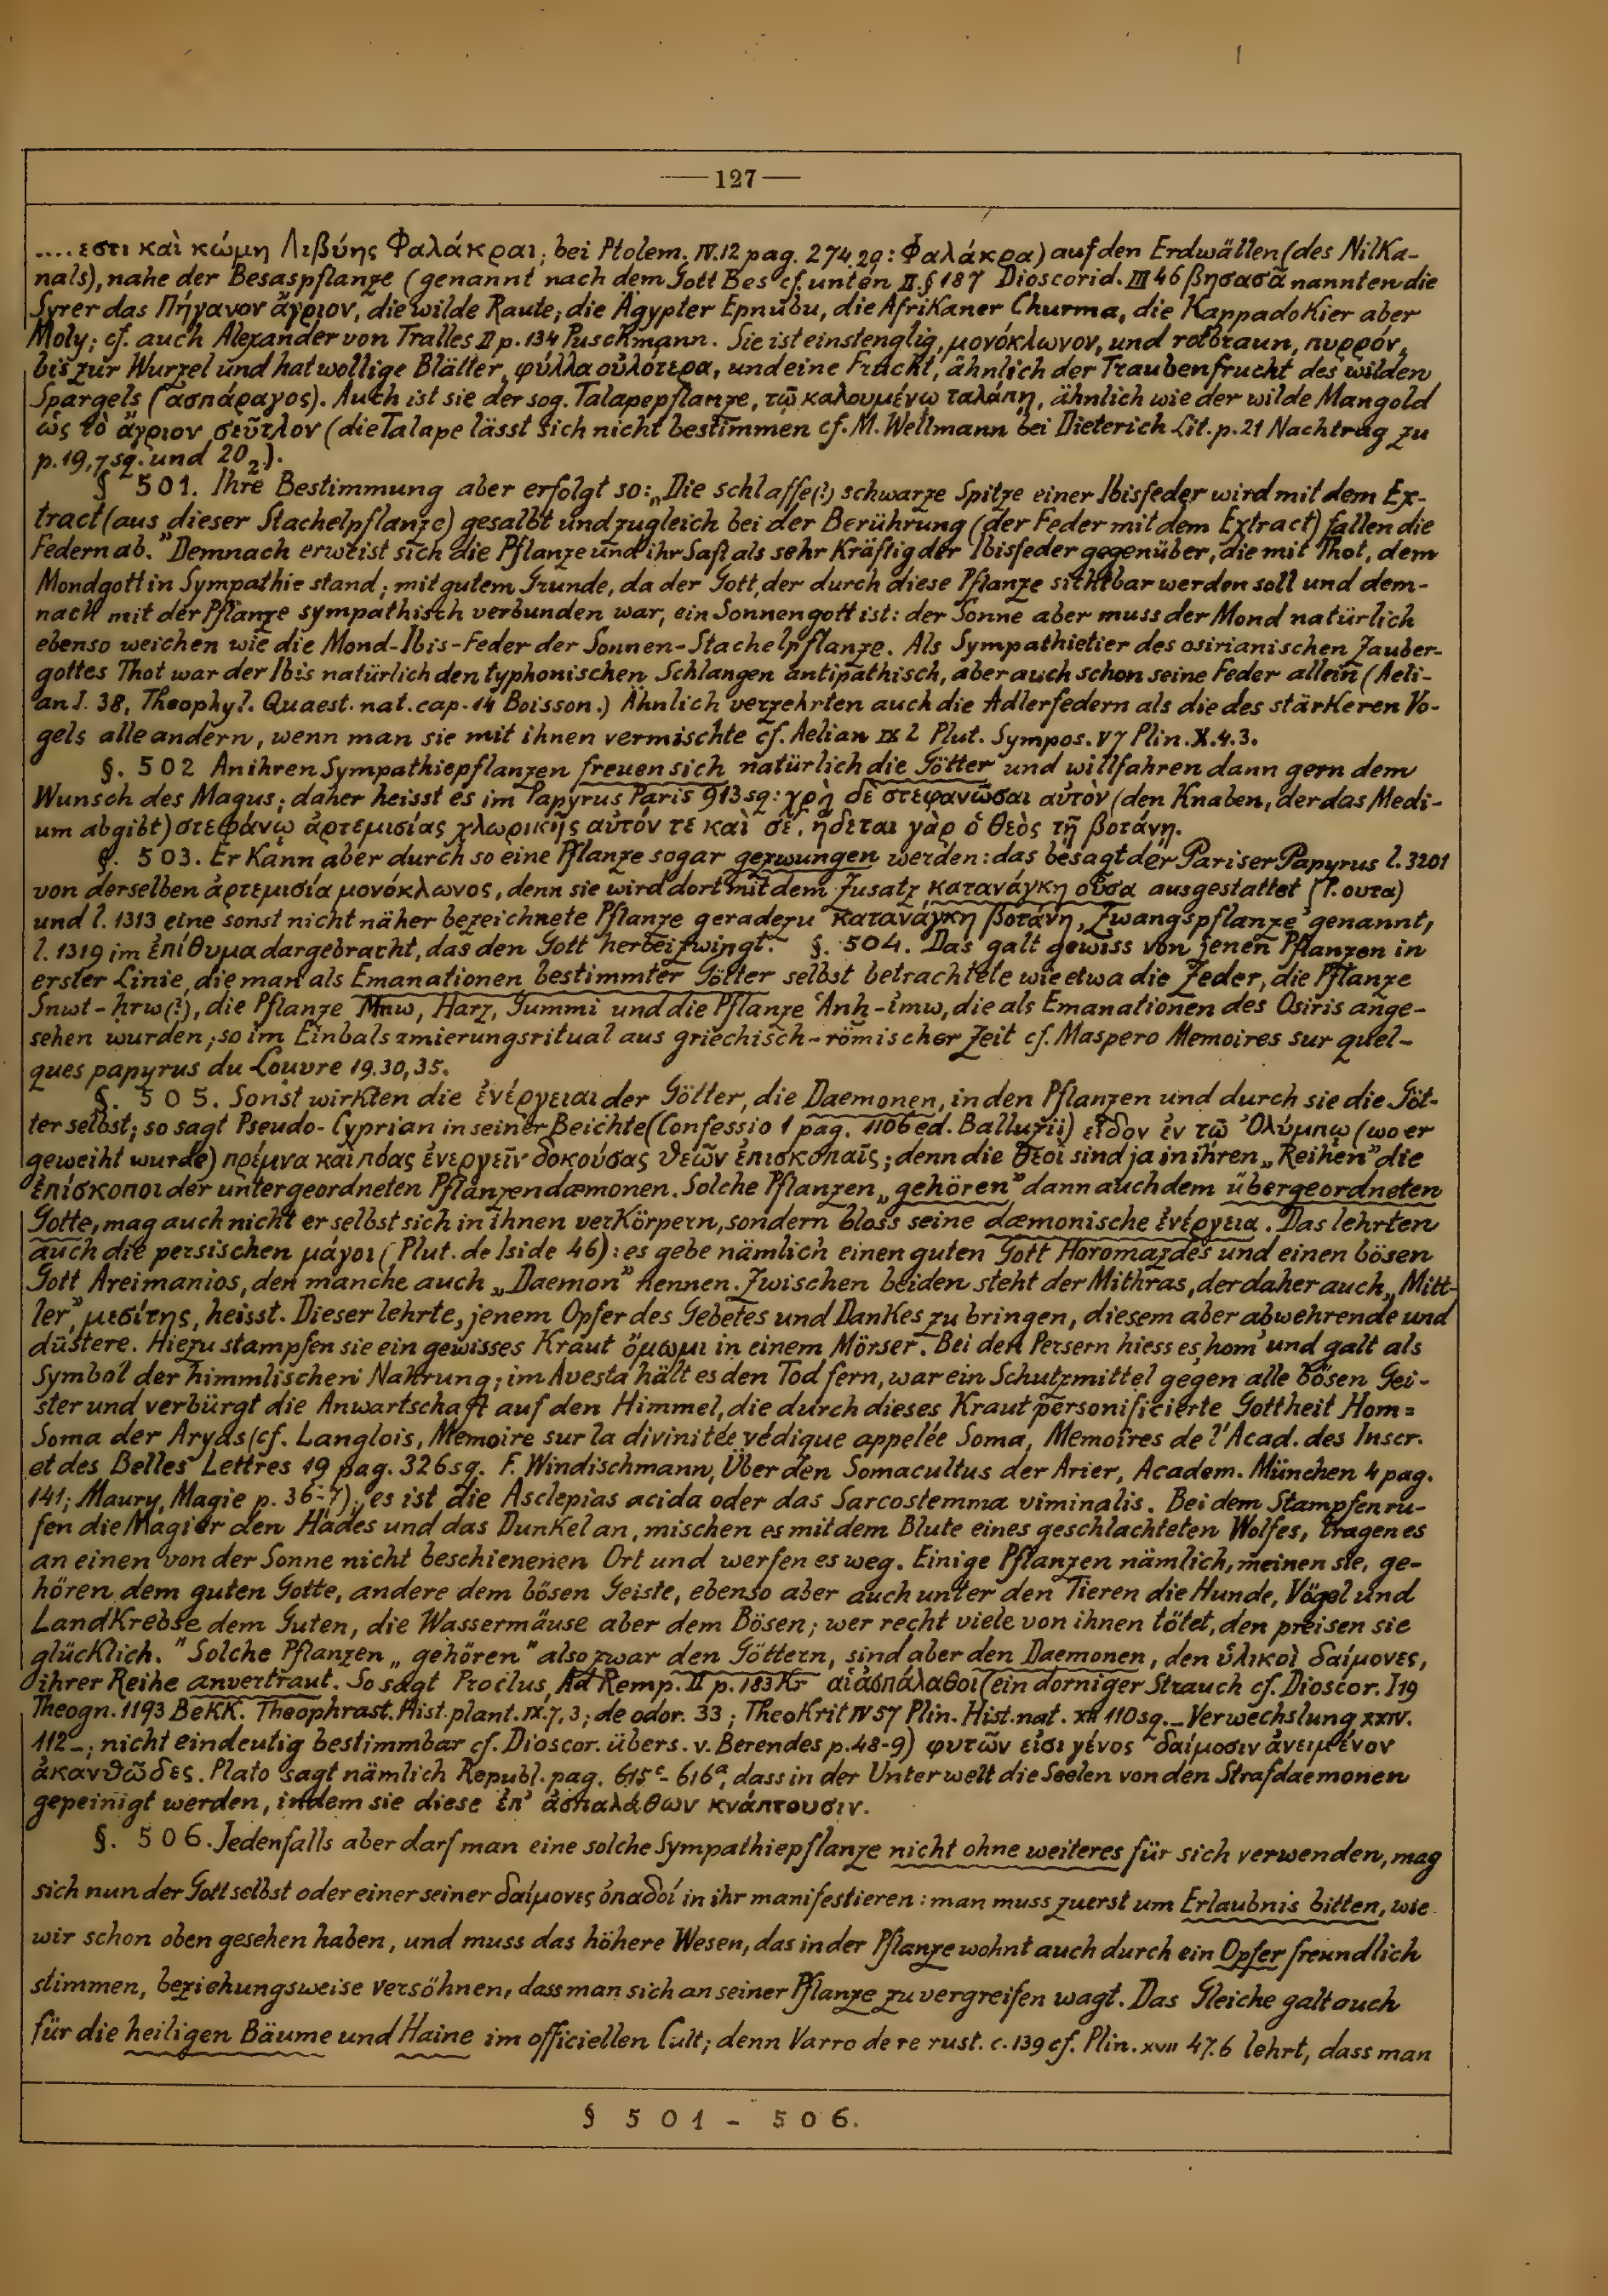 127
.... εστι καὶ κώμη Λιβύης Φαλάκραι; bei Ptolem. IV.12 pag. 274,29: Φαλάκρα) auf den Erdwällen (des Nilka-
nals), nahe der Besaspflanze (genannt nach dem Gott Bes cf. unten II.§187 Dioscorid. III 46 βησασᾶ nannten die
Syrer das Πήγανον ἄγριον, die wilde Raute, die Ägypter Epnubu, die Afrikaner Churma, die Kappadokier aber
Moly; cf. auch Alexander von Tralles II p. 134 Puschmann. Sie ist einstenglig, μονόκλωνον, und rotbraun, πυρρόν,
bis zur Wurzel und hat wollige Blätter, φύλλα οὐλότερα, und eine Frucht, ähnlich der Traubenfrucht des wilden
Spargels (ασπάραγος). Auch ist sie der sog. Talapepflanze, τῷ καλουμένῳ ταλάπῃ, ähnlich wie der wilde Mangold
ὡς τὸ ἄγριον σεῦτλον (die Talape lässt sich nicht bestimmen cf. M. Wellmann bei Dieterich Lit. p. 21 Nachtrag zu
p. 19,7 sq. und 20 2).
§ 501. Ihre Bestimmung aber erfolgt so: „Die schlaffe(?) schwarze Spitze einer Ibisfeder wird mit dem Ex-
tract (aus dieser Stachelpflanze) gesalbt und zugleich bei der Berührung (der Feder mit dem Extract) fallen die
Federn ab.” Demnach erweist sich die Pflanze und ihr Saft als sehr kräftig der Ibisfeder gegenüber, die mit Thot, dem
Mondgott in Sympathie stand; mit gutem Grunde, da der Gott, der durch diese Pflanze sichtbar werden soll und dem-
nach mit der Pflanze sympathisch verbunden war, ein Sonnengott ist: der Sonne aber muss der Mond natürlich
ebenso weichen wie die Mond-Ibis-Feder der Sonnen-Stachelpflanze. Als Sympathietier des osirianischen Zauber-
gottes Thot war der Ibis natürlich den typhonischen Schlangen antipathisch, aber auch schon seine Feder allein (Aeli-
an I. 38, Theophyl. Quaest. nat. cap. 14 Boisson.) Ähnlich verzehrten auch die Adlerfedern als die des stärkeren Vo-
gels alle andern, wenn man sie mit ihnen vermischte cf. Aelian IX 2 Plut. Sympos. V 7 Plin. X. 4. 3.
§. 502 An ihren Sympathiepflanzen freuen sich natürlich die Götter und willfahren dann gern dem
Wunsch des Magus; daher heisst es im Papyrus Paris 913 sq: χρὴ δὲ στεφανῶσαι αὐτὸν (den Knaben, der das Medi-
um abgibt) στεφάνῳ ἀρτεμισίας χλωρικῆς αὐτόν τε καὶ σέ. ἥδεται γὰρ ὁ θεὸς τῇ βοτάνῃ.
§. 503. Er kann aber durch so eine Pflanze sogar gezwungen werden: das besagt der Pariser Papyrus l. 3201
von derselben ἀρτεμισία μονόκλωνος, denn sie wird dort mit dem Zusatz κατανάγκη οὖσα ausgestattet (P. ουτα)
und l. 1313 eine sonst nicht näher bezeichnete Pflanze geradezu κατανάγκη βοτάνη, ‚Zwangspflanze’ genannt,
l. 1319 im ἐπίθυμα dargebracht, das den Gott herbeizwingt. §. 504. Das galt gewiss von jenen Pflanzen in
erster Linie, die man als Emanationen bestimmter Götter selbst betrachtete wie etwa die Zeder, die Pflanze
Snwt-ḥrw(?), die Pflanze Mnw, Harz, Gummi und die Pflanze ʿAnḫ-imw, die als Emanationen des Osiris ange-
sehen wurden; so im Einbalsamierungsritual aus griechisch-römischer Zeit cf. Maspero Memoires sur quel-
ques papyrus du Louvre 19. 30, 35.
§. 505. Sonst wirkten die ἐνέργειαι der Götter, die Daemonen, in den Pflanzen und durch sie die Göt-
ter selbst; so sagt Pseudo-Cyprian in seiner Beichte (Confessio 1 pag. 1106 ed. Balluzii) εἶδον ἐν τῷ Ὀλύμπῳ (wo er
geweiht wurde) πρέμνα καὶ πόας ἐνεργεῖν δοκούσας θεῶν ἐπισκοπαῖς; denn die θεοί sind ja in ihren „Reihen” die
ἐπίσκοποι der untergeordneten Pflanzendæmonen. Solche Pflanzen „gehören” dann auch dem übergeordneten
Gotte, mag auch nicht er selbst sich in ihnen verkörpern, sondern bloss seine dæmonische ἐνέργεια. Das lehrten
auch die persischen μάγοι (Plut. de Iside 46): es gebe nämlich einen guten Gott Horomazdes und einen bösen
Gott Areimanios, den manche auch „Daemon” nennen. Zwischen beiden steht der Mithras, der daher auch „Mitt-
ler”, μεσίτης, heisst. Dieser lehrte, jenem Opfer des Gebetes und Dankes zu bringen, diesem aber abwehrende und
düstere. Hiezu stampfen sie ein gewisses Kraut ὄμωμι in einem Mörser. Bei den Persern hiess es ‚hom’ und galt als
Symbol der himmlischen Nahrung; im Avesta hält es den Tod fern, war ein Schutzmittel gegen alle bösen Gei-
ster und verbürgt die Anwartschaft auf den Himmel, die durch dieses Kraut personificierte Gottheit Hom=
Soma der Aryas (cf. Langlois, Memoire sur la divinitée védique appelée Soma, Memoires de l'Acad. des Inscr.
et des Belles Lettres 19 pag. 326 sq. F. Windischmann, Über den Somacultus der Arier, Academ. München 4 pag.
141; Maury, Magie p. 36-7); es ist die Asclepias acida oder das Sarcostemma viminalis. Bei dem Stampfen ru-
fen die Magier den Hades und das Dunkel an, mischen es mit dem Blute eines geschlachteten Wolfes, tragen es
an einen von der Sonne nicht beschienenen Ort und werfen es weg. Einige Pflanzen nämlich, meinen sie, ge-
hören dem guten Gotte, andere dem bösen Geiste, ebenso aber auch unter den Tieren die Hunde, Vögel und
Landkrebse dem Guten, die Wassermäuse aber dem Bösen; wer recht viele von ihnen tötet, den preisen sie
glücklich.” Solche Pflanzen „gehören” also zwar den Göttern, sind aber den Daemonen, den ὑλικοὶ δαίμονες,
ihrer Reihe anvertraut. So sagt Proclus, Ad Remp. II p. 183 Kr αἱ ἀσπάλαθοι (ein dorniger Strauch cf. Dioscor. I 19
Theogn. 1193 Bekk. Theophrast. Hist. plant. IX. 7, 3; de odor. 33; Theokrit IV 57 Plin. Hist. nat. XII 110 sq. – Verwechslung XXIV.
112 –; nicht eindeutig bestimmbar cf. Dioscor. übers. v. Berendes p. 48-9) φυτῶν εἰσι γένος δαίμοσιν ἀνειμένον
ἀκανθῶδες. Plato sagt nämlich Republ. pag. 615ᶜ- 616ᵃ, dass in der Unterwelt die Seelen von den Strafdaemonen
gepeinigt werden, indem sie diese ἐπ' ἀσπαλάθων κνάπτουσιν.
§. 506. Jedenfalls aber darf man eine solche Sympathiepflanze nicht ohne weiteres für sich verwenden, mag
sich nun der Gott selbst oder einer seiner δαίμονες ὀπαδοί in ihr manifestieren: man muss zuerst um Erlaubnis bitten, wie
wir schon oben gesehen haben, und muss das höhere Wesen, das in der Pflanze wohnt auch durch ein Opfer freundlich
stimmen, beziehungsweise versöhnen, dass man sich an seiner Pflanze zu vergreifen wagt. Das Gleiche galt auch
für die heiligen Bäume und Haine im officiellen Cult; denn Varro de re rust. c. 139 cf. Plin. XVII 47.6 lehrt, dass man
§ 501 - 506.